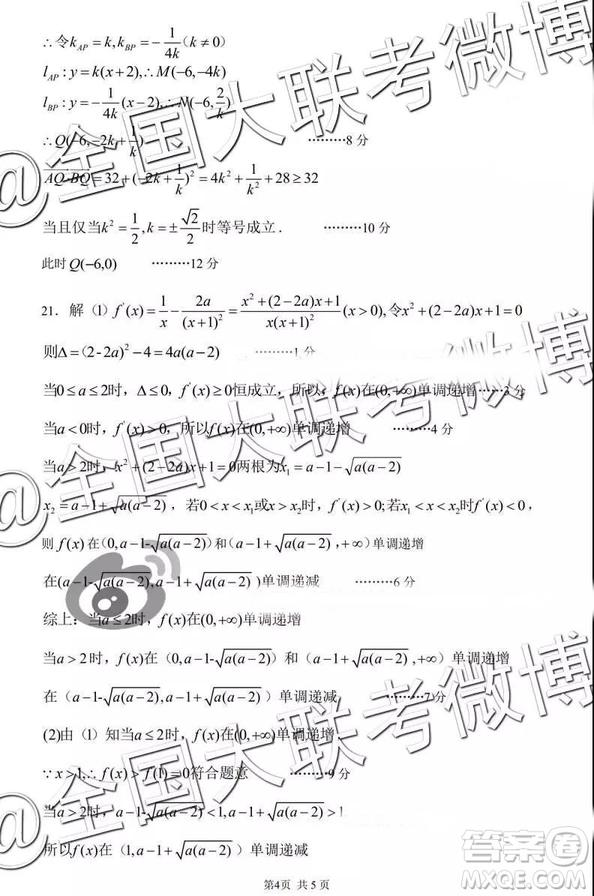 ∴令k_{AP}=k,k_{BP}=-\frac{1}{4k}(k≠0)
l_{AP}:y=k(x+2),∴M(-6,-4k)
l_{BP}:y=-\frac{1}{4k}(x-2),∴N(-6,\frac{2}{k})
∴Q(-6,-2k+\frac{1}{k}) ………8分
\overline{AQ}·\overline{BQ}=32+(-2k+\frac{1}{k})^2=4k^2+\frac{1}{k^2}+28≥32
当且仅当k^2=\frac{1}{2},k=±\frac{\sqrt{2}}{2}时等号成立. ………10分
此时Q(-6,0) ………12分
21. 解(1)f'(x)=\frac{1}{x}-\frac{2a}{(x+1)^2}=\frac{x^2+(2-2a)x+1}{x(x+1)^2}(x>0),令x^2+(2-2a)x+1=0
则Δ=(2-2a)^2-4=4a(a-2) ………1分
当0≤a≤2时,Δ≤0,f'(x)≥0恒成立,所以,f(x)在(0,+∞)单调递增……3分
当a<0时,f'(x)>0,所以f(x)在(0,+∞)单调递增 ………4分
当a>2时,x^2+(2-2a)x+1=0两根为x_1=a-1-\sqrt{a(a-2)}
x_2=a-1+\sqrt{a(a-2)},若0<x<x_1或x>x_2时,f'(x)>0;若x_1<x<x_2时f'(x)<0,
则f(x)在(0,a-1-\sqrt{a(a-2)})和(a-1+\sqrt{a(a-2)},+∞)单调递增
在(a-1-\sqrt{a(a-2)},a-1+\sqrt{a(a-2)})单调递减 ………6分
综上:当a≤2时,f(x)在(0,+∞)单调递增
当a>2时,f(x)在(0,a-1-\sqrt{a(a-2)})和(a-1+\sqrt{a(a-2)},+∞)单调递增
在(a-1-\sqrt{a(a-2)},a-1+\sqrt{a(a-2)})单调递减 ………7分
(2)由(1)知当a≤2时,f(x)在(0,+∞)单调递增,
∵x>1,∴f(x)>f(1)=0符合题意 ………9分
当a>2时,a-1-\sqrt{a(a-2)}<1,a-1+\sqrt{a(a-2)}>1
所以f(x)在(1,a-1+\sqrt{a(a-2)})单调递减
第4页 共5页
@全国大联考微博
@全国大联考微博
@全国大联考微博
答案圈
MXQE.COM